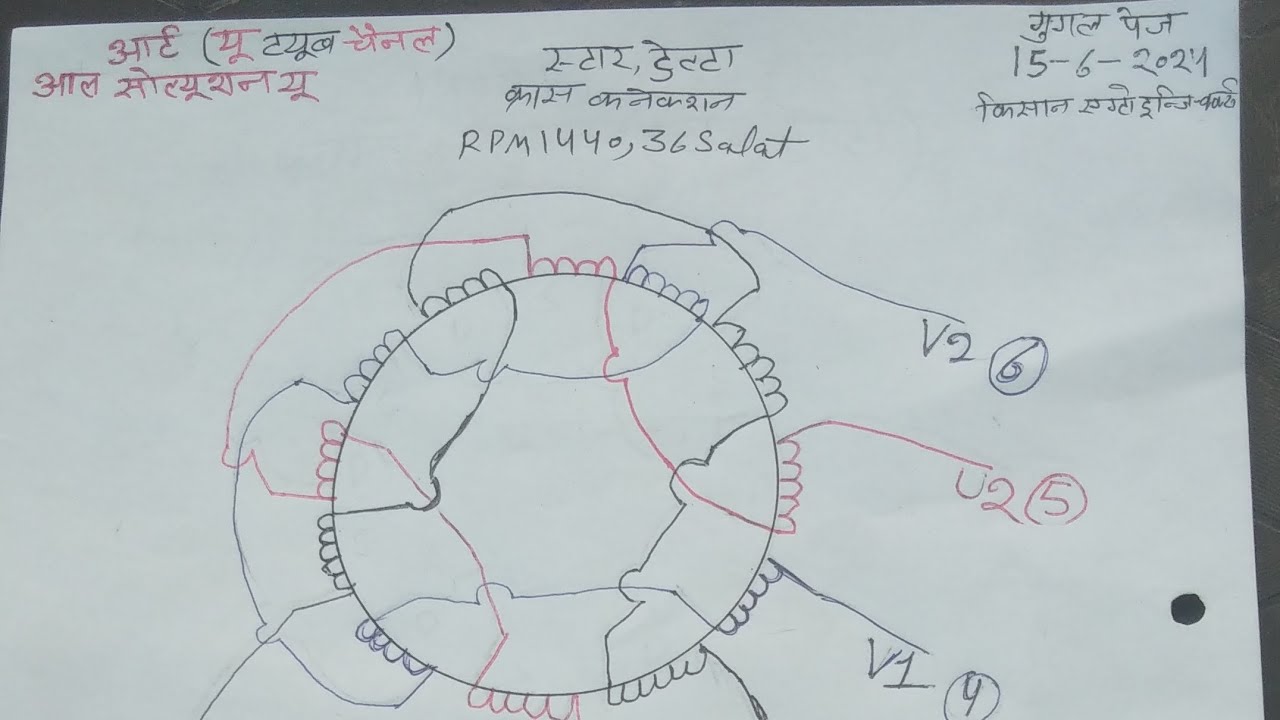 आर्ट (यू टयूब चैनल)
आल सोल्यूशन यू
स्टार, डेल्टा
क्रास कनेक्शन
RPM 1440, 36 Salat
गुगल पेज
15-6-2024
किसान एग्रो इन्जि.
V2 6
U2 5
V1 4